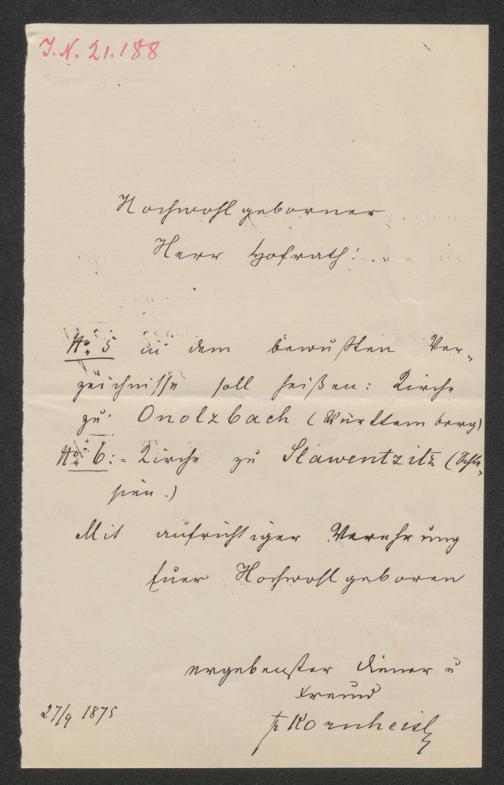 I.N. 21.188
Hochwohlgeborner
Herr Hofrath!
No. 5 in dem bewußten Ver-
zeichnisse soll heißen: Kirche
zu Onolzbach (Württemberg)
No. 6: = Kirche zu Slawentzitz (Schle-
sien.)
Mit aufrichtiger Verehrung
Euer Hochwohlgeboren
ergebenster Diener u
Freund
Fr Kornheisl
27/9 1875